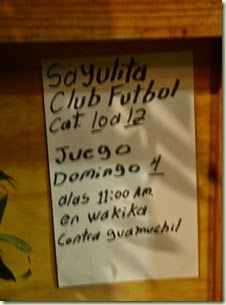 Sayulita
Club Futbol
Cat. 10 a 12
Juego
Domingo 4
a/as 11:00 Am.
en wakika
Contra guamuchil